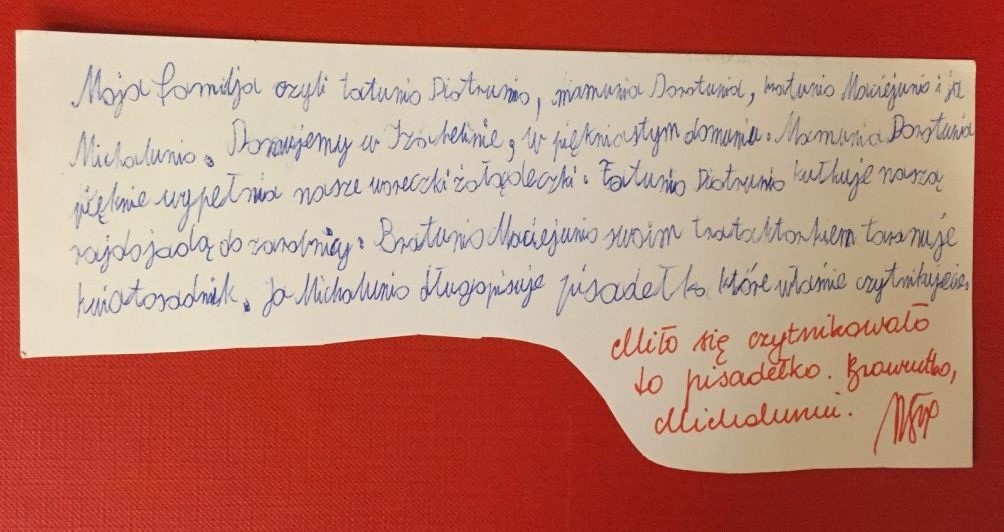 Moja familja czyli tatunio Piotrunio, mamunia Dorotunia, bratunio Maciejunio i ja
Michalunio. Domujemy w Izabelinie, w piękniastym domuniu. Mamunia Dorotunia
pięknie wypełnia nasze woreczki żołądeczki. Tatunio Piotrunio kulkuje naszą
rajdojadą do zarobnicy. Bratunio Maciejunio swoim trataktorkiem taranuje
kwiatosadnik. Ja Michalunio długopisuje pisadełko które właśnie czytnikujecie.
Miło się czytnikowało
to pisadełko. Brawudko,
Michaluniu.